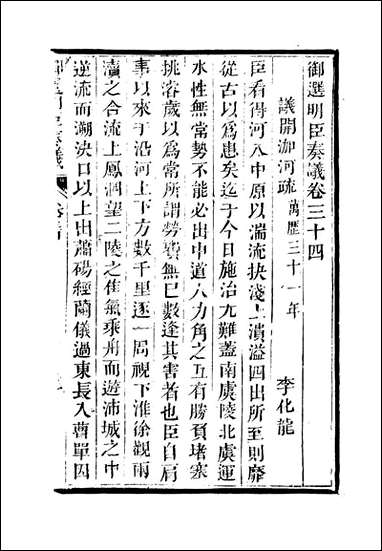 御選明臣奏議卷三十四
議開泇河疏萬歷三十一年
李化龍
臣看得河入中原以湍流抉淺土潰溢四出所至則靡
從古以爲患矣迄于今日施治尤難蓋南虞陵北虞運
水性無常勢不能必出中道人力角之互有勝負堵塞
挑濬歲以爲常所謂勞費無已數逢其害者也臣自肩
事以來于沿河上下方數千里逐一周視下淮徐觀兩
瀆之合流上鳳泗望二陵之佳氣乘舟而遊沛城之中
逆流而溯決口以上出蕭碭經蘭儀過東長入曹單因